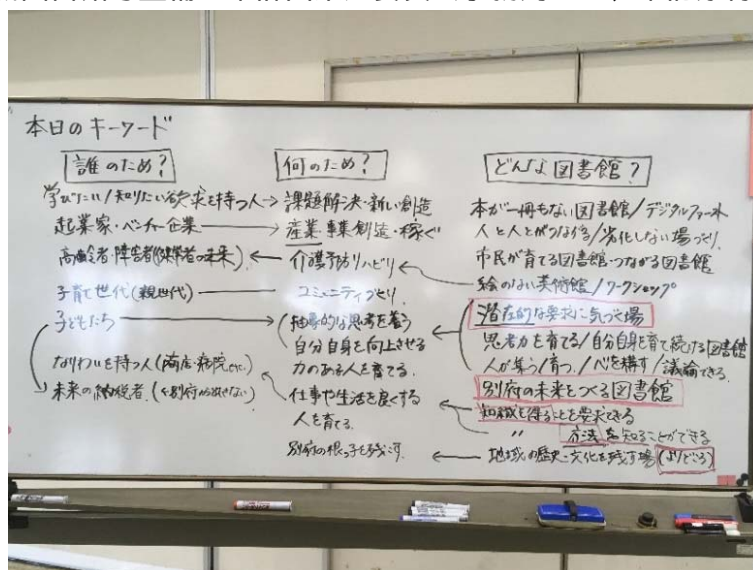 本日のキーワード
誰のため?
学びたい/知りたい欲求を持つ人→
起業家・ベンチャー企業
高齢者・障害者(健常者の未来)
子育て世代(親世代)
子どもたち
なりわいを持つ人(商店・病院etc.)
未来の納税者.
何のため?
課題解決・新しい創造
産業・事業創造・稼ぐ
介護予防リハビリ
コミュニティづくり
抽象的な思考を養う
自分自身を向上させる
力のある人を育てる.
仕事や生活を良くする
人を育てる.
別府の根っ子を残す.
どんな図書館?
本が一冊もない図書館/デジタルファースト
人と人とがつながる/劣化しない場づくり.
市民が育てる図書館・つながる図書館
絵のない美術館/ワークショップ
潜在的な要求に気づく場
思考力を育てる/自分自身を育て続ける図書館
人が集う/育つ./心を構す/議論できる.
別府の未来をつくる図書館
知識を得ることを要求できる
〃 方法を知ることができる
地域の歴史・文化を残す場(よりどころ)